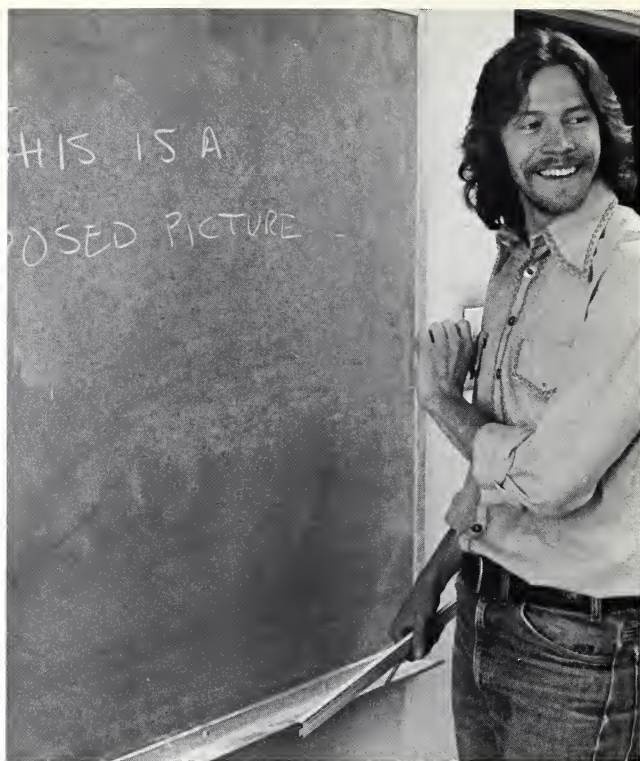 HIS IS A
POSED PICTURE -